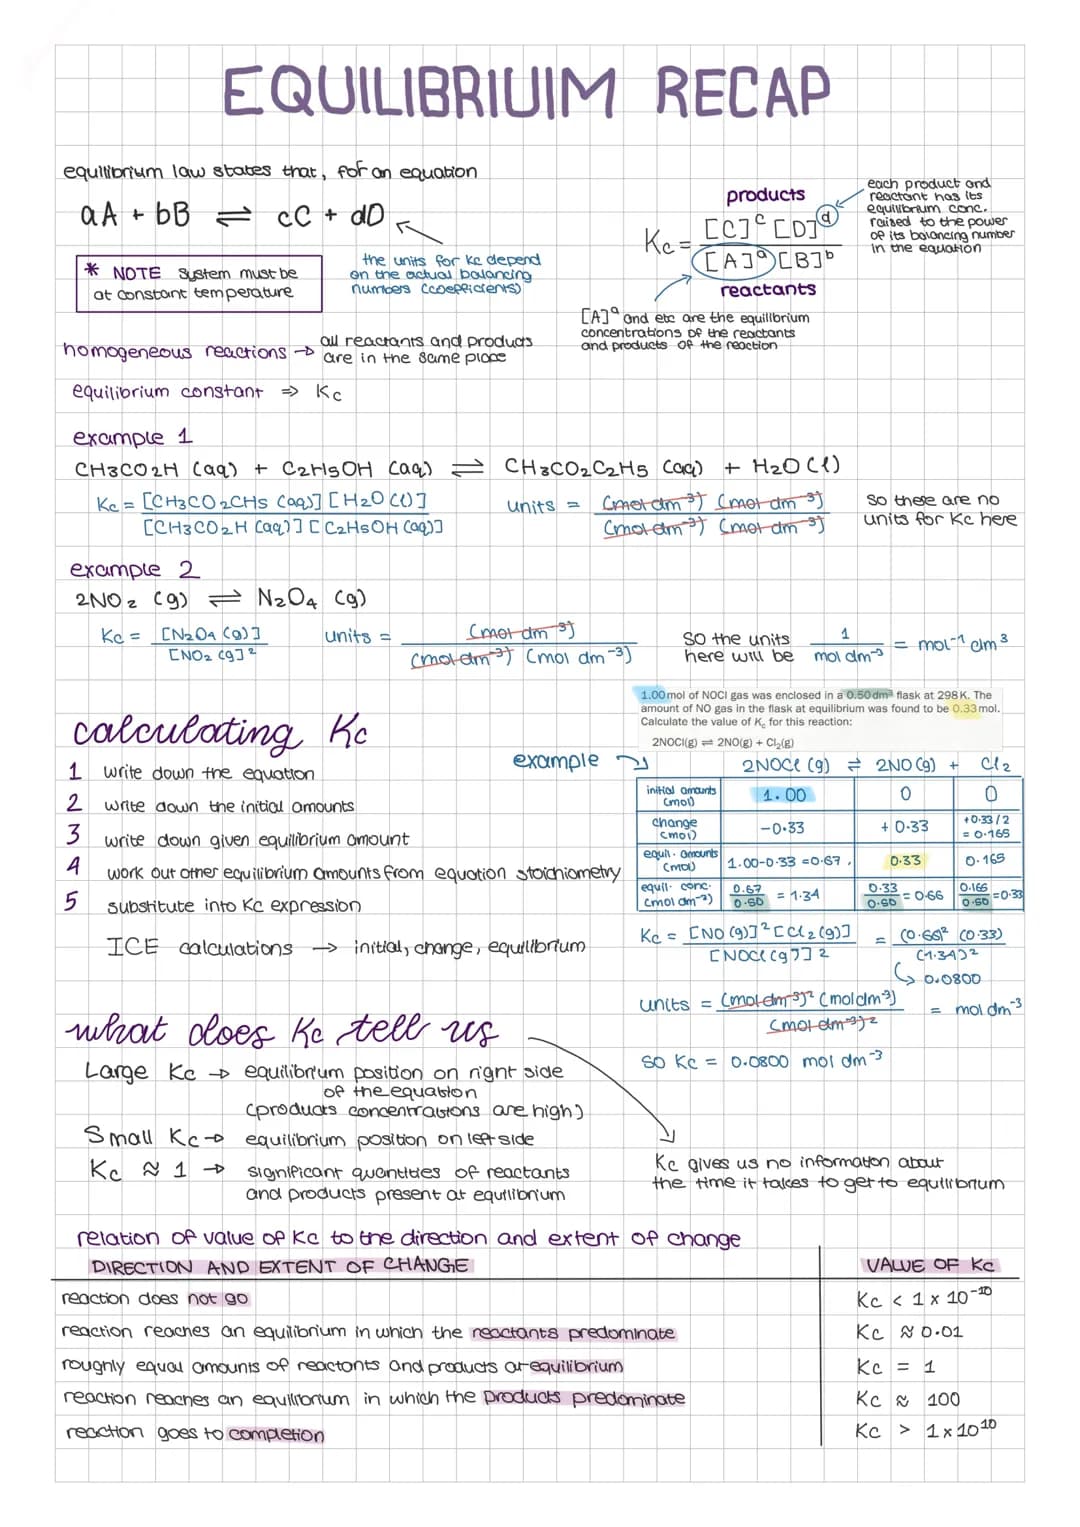 EQUILIBRIUIM RECAP
equilibrium law states that, for an equation
aA + bB ⇌ cC + dD
* NOTE system must be
at constant temperature
the units for Kc depend
on the actual balancing
numbers (coefficients)
products
Kc = [C]ᶜ [D]ᵈ / [A]ᵃ [B]ᵇ
reactants
each product and
reactant has its
equilibrium conc.
raised to the power
of its balancing number
in the equation
[A]ᵃ and etc are the equilibrium
concentrations of the reactants
and products of the reaction
homogeneous reactions → all reactants and products
are in the same place
equilibrium constant ⇒ Kc
example 1
CH3CO2H (aq) + C2H5OH (aq) ⇌ CH3CO2C2H5 (aq) + H2O (l)
Kc = [CH3CO2CH5 (aq)] [H2O (l)] / [CH3CO2H (aq)] [C2H5OH (aq)]
units = (mol dm⁻³) (mol dm⁻³) / (mol dm⁻³) (mol dm⁻³)
so there are no
units for Kc here
example 2
2NO2 (g) ⇌ N2O4 (g)
Kc = [N2O4 (g)] / [NO2 (g)]²
units = (mol dm⁻³) / (mol dm⁻³) (mol dm⁻³)
so the units
here will be
1 / mol dm⁻³ = mol⁻¹ dm³
calculating Kc
1 write down the equation
2 write down the initial amounts
3 write down given equilibrium amount
4 work out other equilibrium amounts from equation stoichiometry
5 substitute into Kc expression
ICE calculations → initial, change, equilibrium
1.00 mol of NOCl gas was enclosed in a 0.50 dm³ flask at 298 K. The
amount of NO gas in the flask at equilibrium was found to be 0.33 mol.
Calculate the value of Kc for this reaction:
2NOCl(g) ⇌ 2NO(g) + Cl₂(g)
example
2NOCl (g) ⇌ 2NO (g) + Cl2
initial amounts (mol) 1.00 0 0
change (mol) -0.33 +0.33 +0.33/2 = 0.165
equil. amounts (mol) 1.00-0.33 = 0.67 0.33 0.165
equil. conc. (mol dm⁻³) 0.67/0.50 = 1.34 0.33/0.50 = 0.66 0.165/0.50 = 0.33
Kc = [NO (g)]² [Cl2 (g)] / [NOCl (g)]² = (0.66)² (0.33) / (1.34)²
↳ 0.0800
units = (mol dm⁻³)² (mol dm⁻³) / (mol dm⁻³)² = mol dm⁻³
so Kc = 0.0800 mol dm⁻³
what does Kc tell us
Large Kc → equilibrium position on right side
of the equation
(products concentrations are high)
Small Kc → equilibrium position on left side
Kc ≈ 1 → significant quantities of reactants
and products present at equilibrium
Kc gives us no information about
the time it takes to get to equilibrium
relation of value of Kc to the direction and extent of change
DIRECTION AND EXTENT OF CHANGE VALUE OF Kc
reaction does not go Kc < 1 x 10⁻¹⁰
reaction reaches an equilibrium in which the reactants predominate Kc ≈ 0.01
roughly equal amounts of reactants and products at equilibrium Kc = 1
reaction reaches an equilibrium in which the products predominate Kc ≈ 100
reaction goes to completion Kc > 1 x 10¹⁰